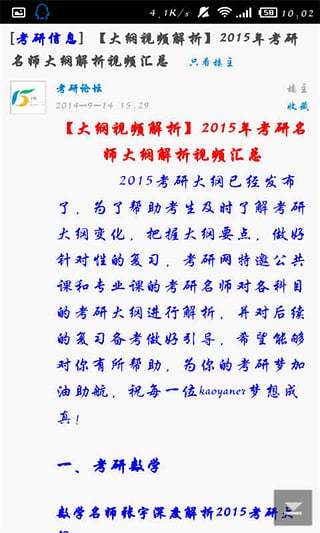 4.1K/s 58 10:02
[考研信息] 【大纲视频解析】2015年考研
名师大纲解析视频汇总 只看楼主
考研论坛 楼主
2014-9-14 15:29 收藏
【大纲视频解析】2015年考研名
师大纲解析视频汇总
2015考研大纲已经发布
了，为了帮助考生及时了解考研
大纲变化，把握大纲要点，做好
针对性的复习，考研网特邀公共
课和专业课的考研名师对各科目
的考研大纲进行解析，并对后续
的复习备考做好引导，希望能够
对你有所帮助，为你的考研梦加
油助航，祝每一位kaoyaner梦想成
真！
一、考研数学
数学名师张宇深度解析2015考研大